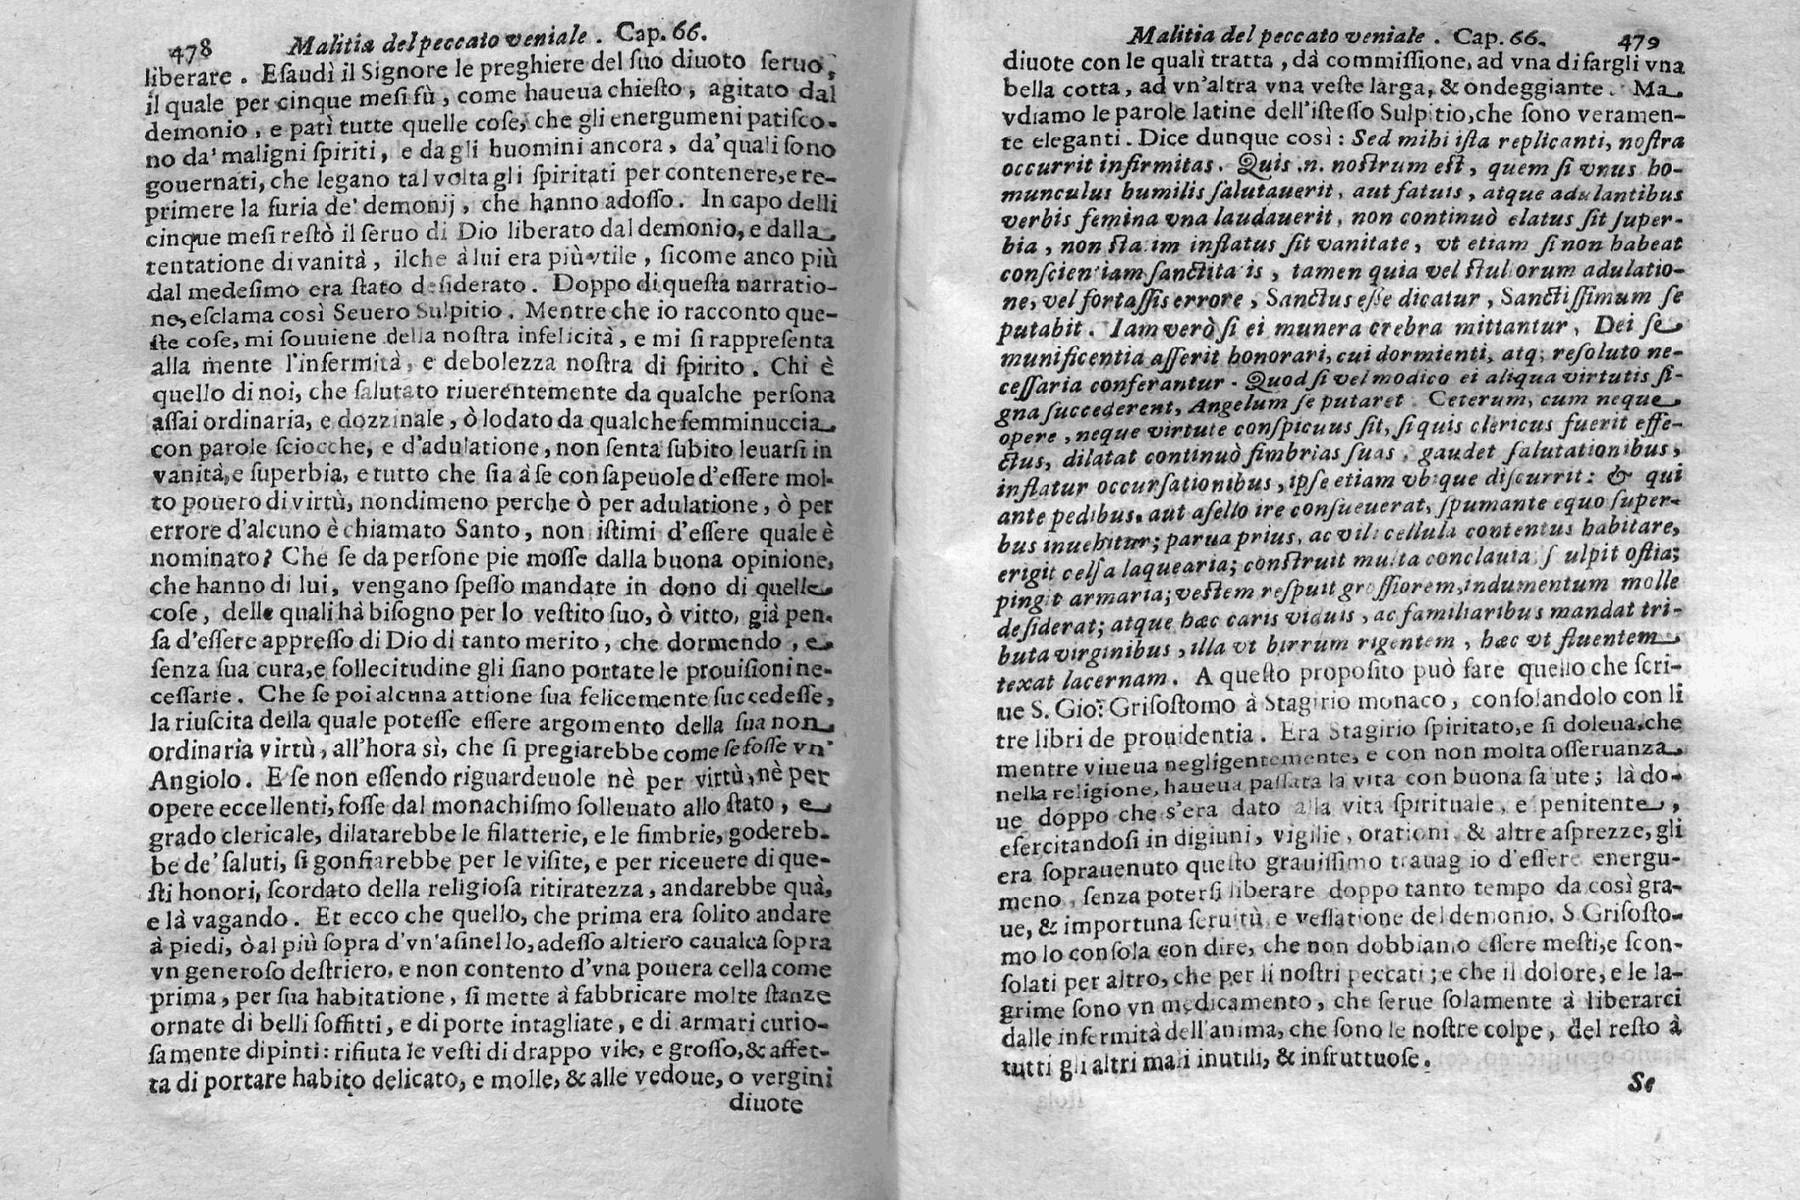 478 Malitia del peccato veniale. Cap. 66.
liberare. Eſaudì il Signore le preghiere del ſuo diuoto ſeruo,
il quale per cinque meſi fù, come haueua chieſto, agitato dal
demonio, e patì tutte quelle coſe, che gli energumeni patiſco-
no da' maligni ſpiriti, e da gli huomini ancora, da' quali ſono
gouernati, che legano tal volta gli ſpiritati per contenere, e re-
primere la furia de' demonij, che hanno adoſſo. In capo delli
cinque meſi reſtò il ſeruo di Dio liberato dal demonio, e dalla
tentatione di vanità, il che à lui era più vtile, ſicome anco più
dal medeſimo era ſtato deſiderato. Doppo di queſta narratio-
ne, eſclama così Seuero Sulpitio. Mentre che io racconto que-
ſte coſe, mi ſouuiene della noſtra infelicità, e mi ſi rappreſenta
alla mente l'infermità, e debolezza noſtra di ſpirito. Chi è
quello di noi, che ſalutato riuerentemente da qualche perſona
aſſai ordinaria, e dozzinale, ò lodato da qualche femminuccia
con parole ſciocche, e d'adulatione, non ſenta ſubito leuarſi in
vanità, e ſuperbia, e tutto che ſia à ſe conſapeuole d'eſſere mol-
to pouero di virtù, nondimeno perche ò per adulatione, ò per
errore d'alcuno è chiamato Santo, non iſtimi d'eſſere quale è
nominato? Che ſe da perſone pie moſſe dalla buona opinione,
che hanno di lui, vengano ſpeſſo mandate in dono di quelle
coſe, delle quali hà biſogno per lo veſtito ſuo, ò vitto, già pen-
ſa d'eſſere appreſſo di Dio di tanto merito, che dormendo, e
ſenza ſua cura, e ſollecitudine gli ſiano portate le prouiſioni ne-
ceſſarie. Che ſe poi alcuna attione ſua felicemente ſuccedeſſe,
la riuſcita della quale poteſſe eſſere argomento della ſua non
ordinaria virtù, all'hora sì, che ſi pregiarebbe come ſe foſſe vn'
Angiolo. E ſe non eſſendo riguardeuole nè per virtù, nè per
opere eccellenti, foſſe dal monachiſmo ſolleuato allo ſtato, e
grado clericale, dilatarebbe le filatterie, e le fimbrie, godereb-
be de' ſaluti, ſi gonfiarebbe per le viſite, e per riceuere di que-
ſti honori, ſcordato della religioſa ritiratezza, andarebbe quà,
e là vagando. Et ecco che quello, che prima era ſolito andare
à piedi, ò al più ſopra d'vn'aſinello, adeſſo altiero caualca ſopra
vn generoſo deſtriero, e non contento d'vna pouera cella come
prima, per ſua habitatione, ſi mette à fabbricare molte ſtanze
ornate di belli ſoffitti, e di porte intagliate, e di armari curio-
ſamente dipinti: rifiuta le veſti di drappo vile, e groſſo, & affet-
ta di portare habito delicato, e molle, & alle vedoue, o vergini
diuote
Malitia del peccato veniale. Cap. 66. 479
diuote con le quali tratta, dà commiſſione, ad vna di fargli vna
bella cotta, ad vn'altra vna veſte larga, & ondeggiante. Ma
vdiamo le parole latine dell'iſteſſo Sulpitio, che ſono veramen-
te eleganti. Dice dunque così: Sed mihi iſta replicanti, noſtra
occurrit infirmitas. Quis .n. noſtrum eſt, quem ſi vnus ho-
munculus humilis ſalutauerit, aut fatuis, atque adulantibus
verbis femina vna laudauerit, non continuò elatus ſit ſuper-
bia, non ſtatim inflatus ſit vanitate, vt etiam ſi non habeat
conſcientiam ſanctitatis, tamen quia vel ſtultorum adulatio-
ne, vel fortaſſis errore, Sanctus eſſe dicatur, Sanctiſſimum ſe
putabit. Iam verò ſi ei munera crebra mittantur, Dei ſe
munificentia aſſerit honorari, cui dormienti, atq; reſoluto ne-
ceſſaria conferantur. Quod ſi vel modico ei aliqua virtutis ſi-
gna ſuccederent, Angelum ſe putaret. Ceterum, cum neque
opere, neque virtute conſpicuus ſit, ſi quis clericus fuerit effe-
ctus, dilatat continuò fimbrias ſuas, gaudet ſalutationibus,
inflatur occurſationibus, ipſe etiam vbique diſcurrit: & qui
ante pedibus, aut aſello ire conſueuerat, ſpumante equo ſuper-
bus inuehitur; parua prius, ac vili cellula contentus habitare,
erigit celſa laquearia; conſtruit multa conclauia, ſculpit oſtia;
pingit armaria; veſtem reſpuit groſſiorem, indumentum molle
deſiderat; atque hæc caris viduis, ac familiaribus mandat tri-
buta virginibus, illa vt birrum rigentem, hæc vt fluentem
texat lacernam. A queſto propoſito può fare quello che ſcri-
ue S. Gio: Griſoſtomo à Stagirio monaco, conſolandolo con li
tre libri de prouidentia. Era Stagirio ſpiritato, e ſi doleua, che
mentre viueua negligentemente, e con non molta oſſeruanza
nella religione, haueua paſſata la vita con buona ſalute; là do-
ue doppo che s'era dato alla vita ſpirituale, e penitente,
eſercitandoſi in digiuni, vigilie, orationi, & altre aſprezze, gli
era ſoprauenuto queſto grauiſſimo trauaglio d'eſſere energu-
meno, ſenza poterſi liberare doppo tanto tempo da così gra-
ue, & importuna ſeruitù, e veſſatione del demonio. S. Griſoſto-
mo lo conſola con dire, che non dobbiamo eſſere meſti, e ſcon-
ſolati per altro, che per li noſtri peccati; e che il dolore, e le la-
grime ſono vn medicamento, che ſerue ſolamente à liberarci
dalle infermità dell'anima, che ſono le noſtre colpe, del reſto à
tutti gli altri mali inutili, & infruttuoſe.
Se